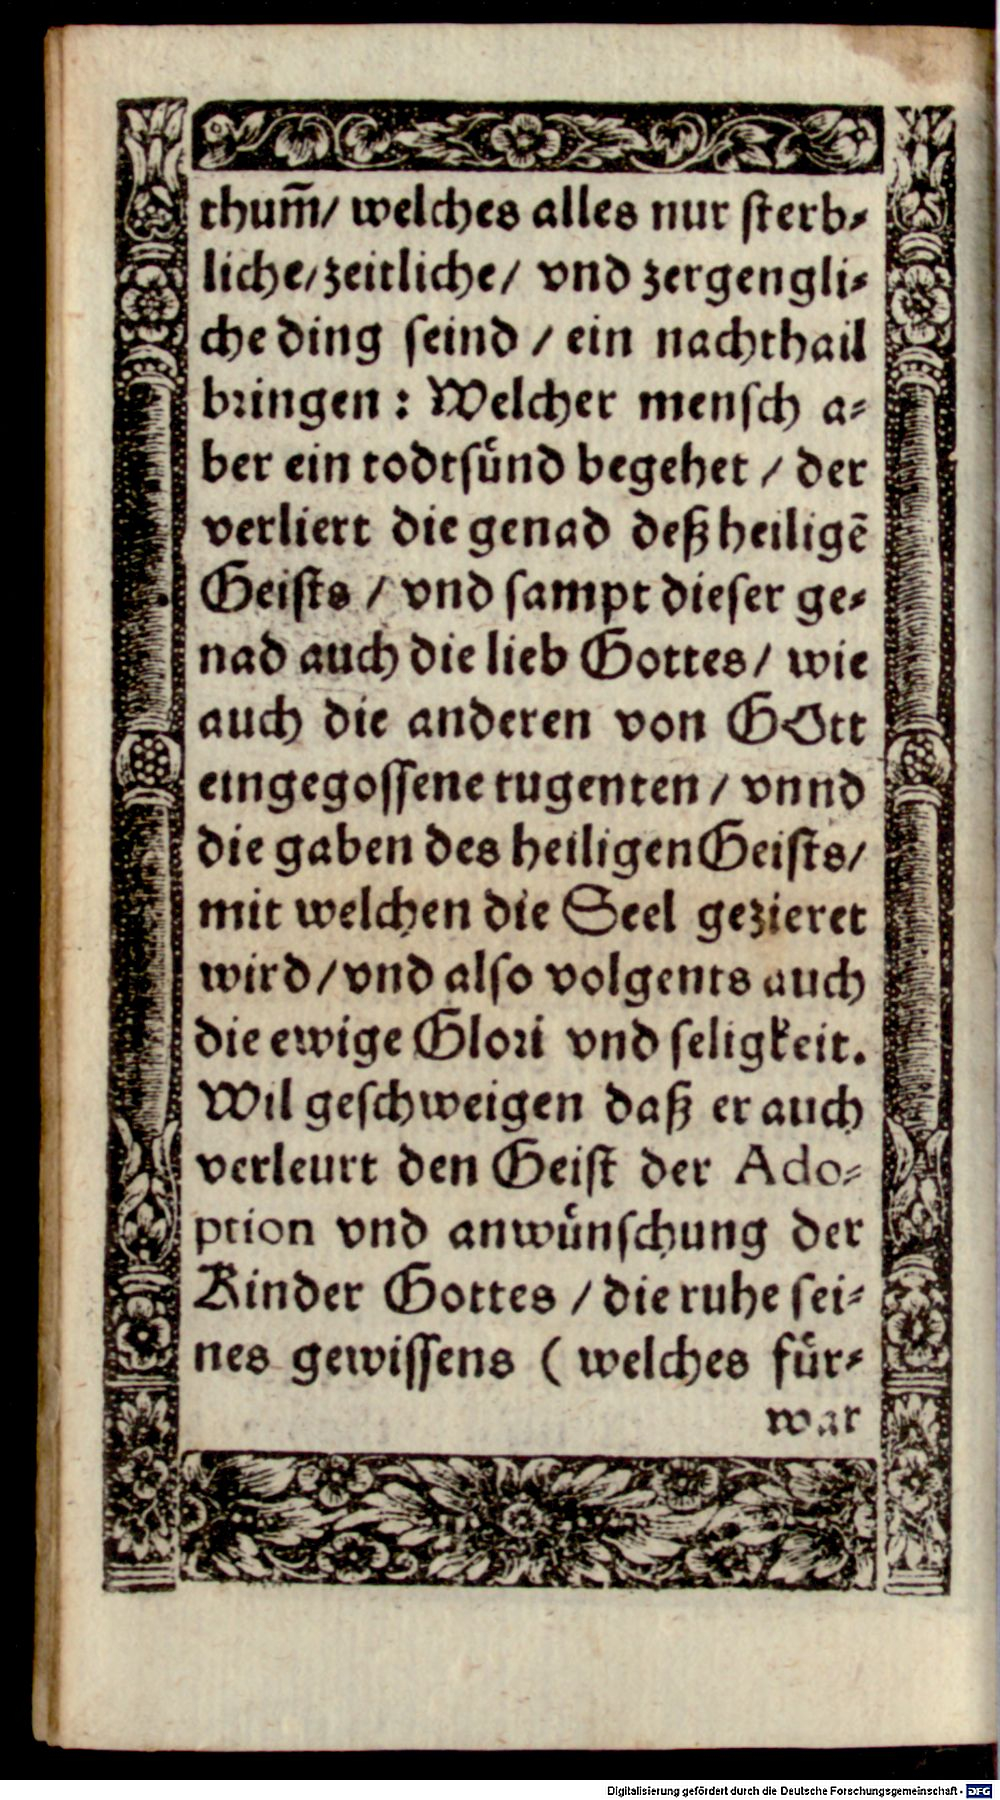 thum̃/ welches alles nur ſterb⸗
liche/ zeitliche/ vnd zergengli⸗
che ding ſeind / ein nachthail
bꝛingen : Welcher menſch a⸗
ber ein todtſuͤnd begehet / der
verliert die genad deß heiligẽ
Geiſts / vnd ſampt dieſer ge⸗
nad auch die lieb Gottes/ wie
auch die anderen von GOtt
eingegoſſene tugenten / vnnd
die gaben des heiligen Geiſts/
mit welchen die Seel gezieret
wird/ vnd alſo volgents auch
die ewige Gloꝛi vnd ſeligkeit.
Wil geſchweigen daß er auch
verleurt den Geiſt der Ado⸗
ption vnd anwuͤnſchung der
Kinder Gottes / die ruhe ſei⸗
nes gewiſſens ( welches fuͤr⸗
war
Digitalisierung gefördert durch die Deutsche Forschungsgemeinschaft - DFG